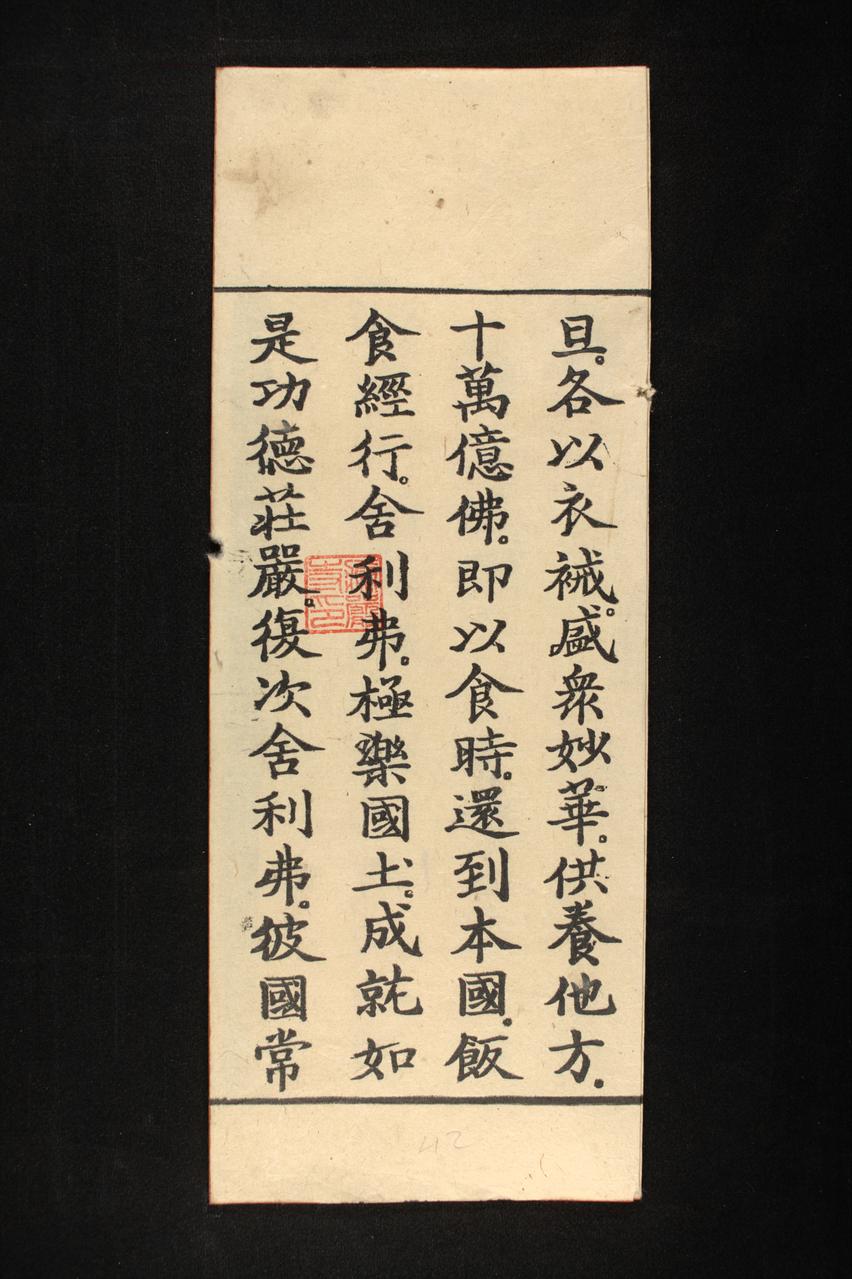 旦。各以衣祴。盛衆妙華。供養他方。
十萬億佛。即以食時。還到本國。飯
食經行。舍利弗。極樂國土。成就如
是功德莊嚴。復次舍利弗。彼國常
42